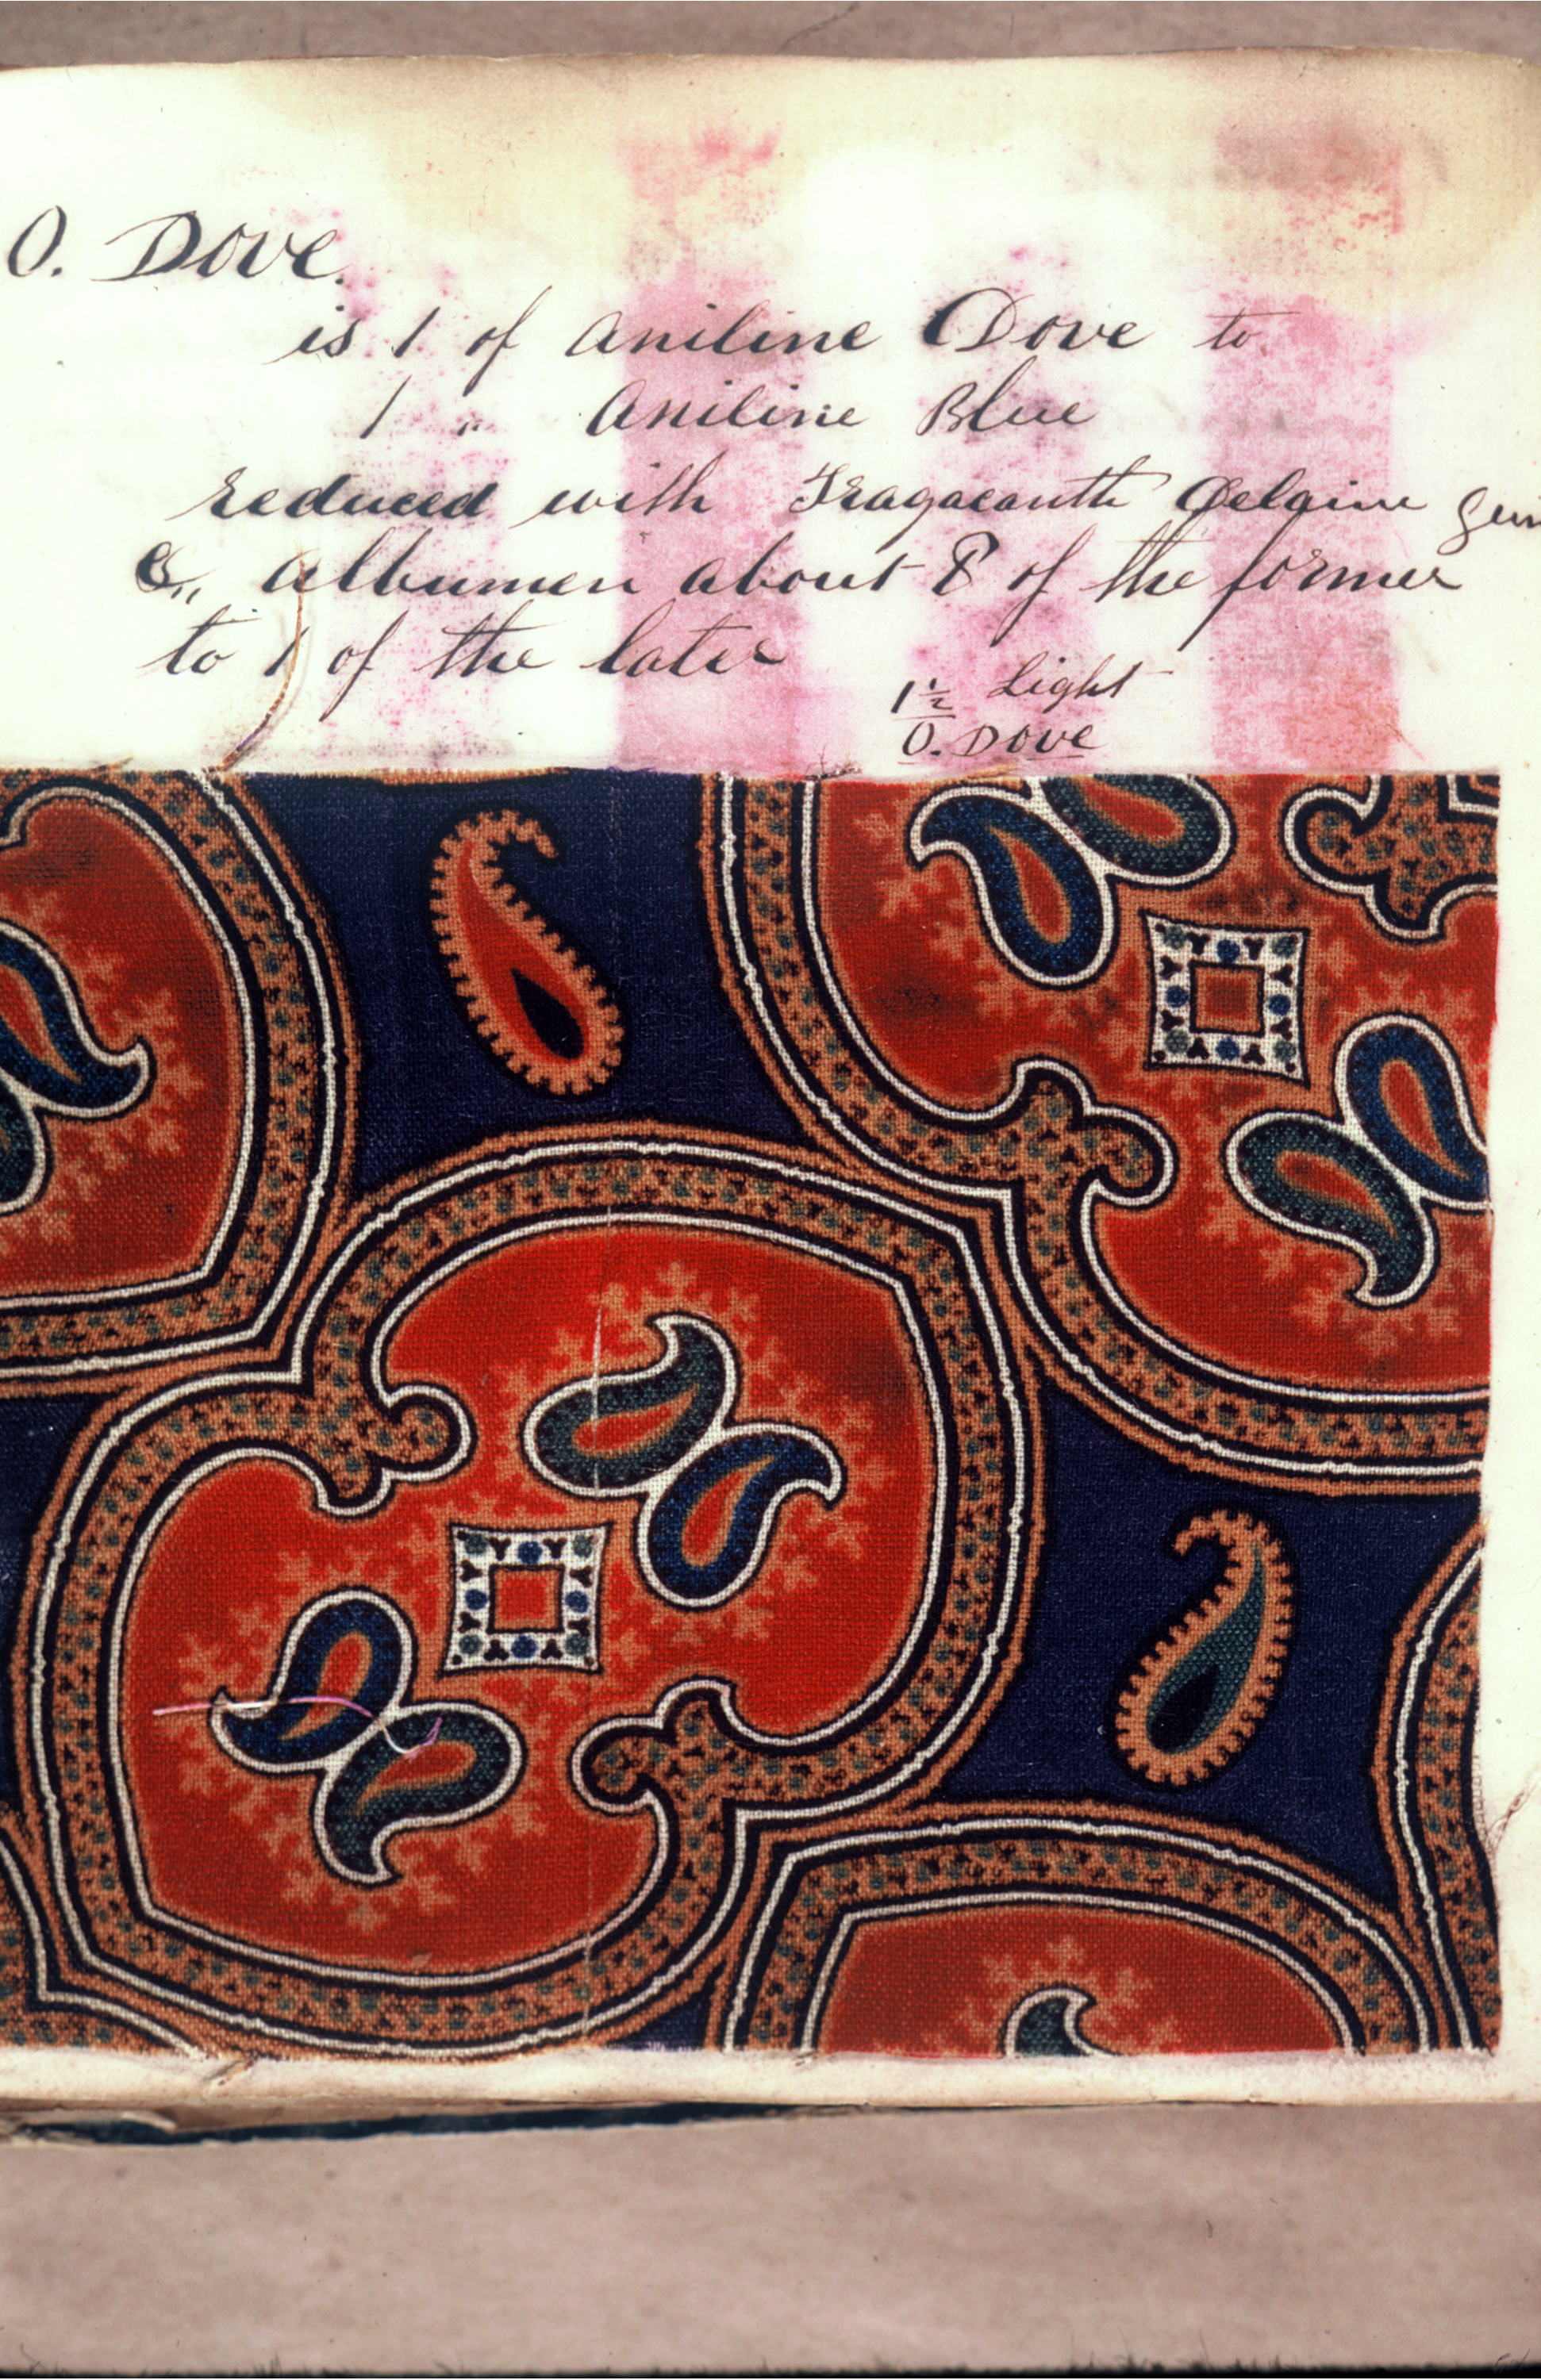 O. Dove.
is 1 of Aniline Dove to
1 " Aniline Blue
reduced with Tragacanth Delaine
& albumen about 8 of the former
to 1 of the later
1½ Light
O. Dove